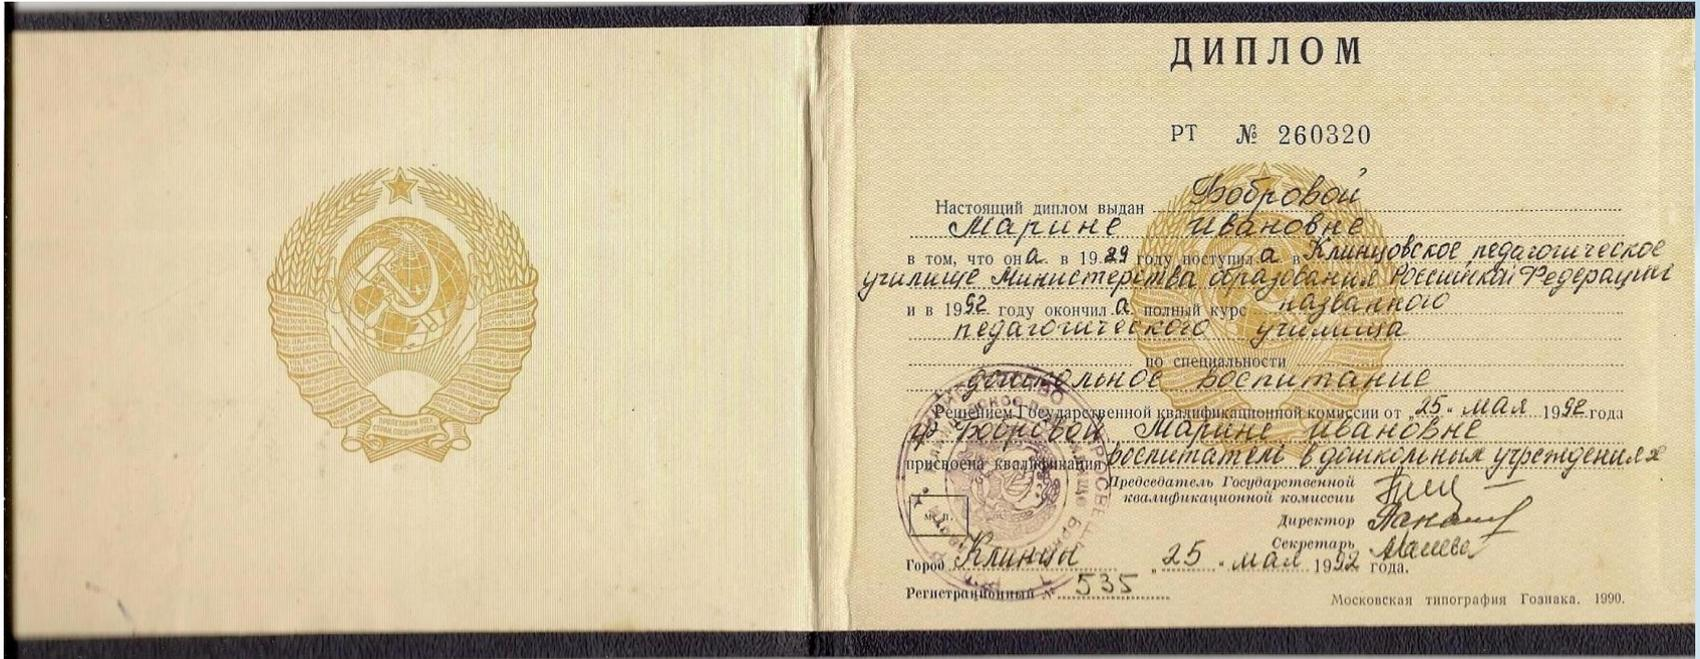 ДИПЛОМ
РТ № 260320
Настоящий диплом выдан Бобровой
Марине Ивановне
в том, что она в 1989 году поступила в Клинцовское педагогическое
училище Министерства образования Российской Федерации
и в 1992 году окончила полный курс названного
педагогического училища
по специальности
дошкольное воспитание
Решением Государственной квалификационной комиссии от „25“ мая 1992 года
Бобровой Марине Ивановне
присвоена квалификация воспитатель в дошкольных учреждениях
Председатель Государственной
квалификационной комиссии
Директор
Секретарь
м. п.
Город Клинцы „25“ мая 1992 года.
Регистрационный № 535
Московская типография Гознака. 1990.